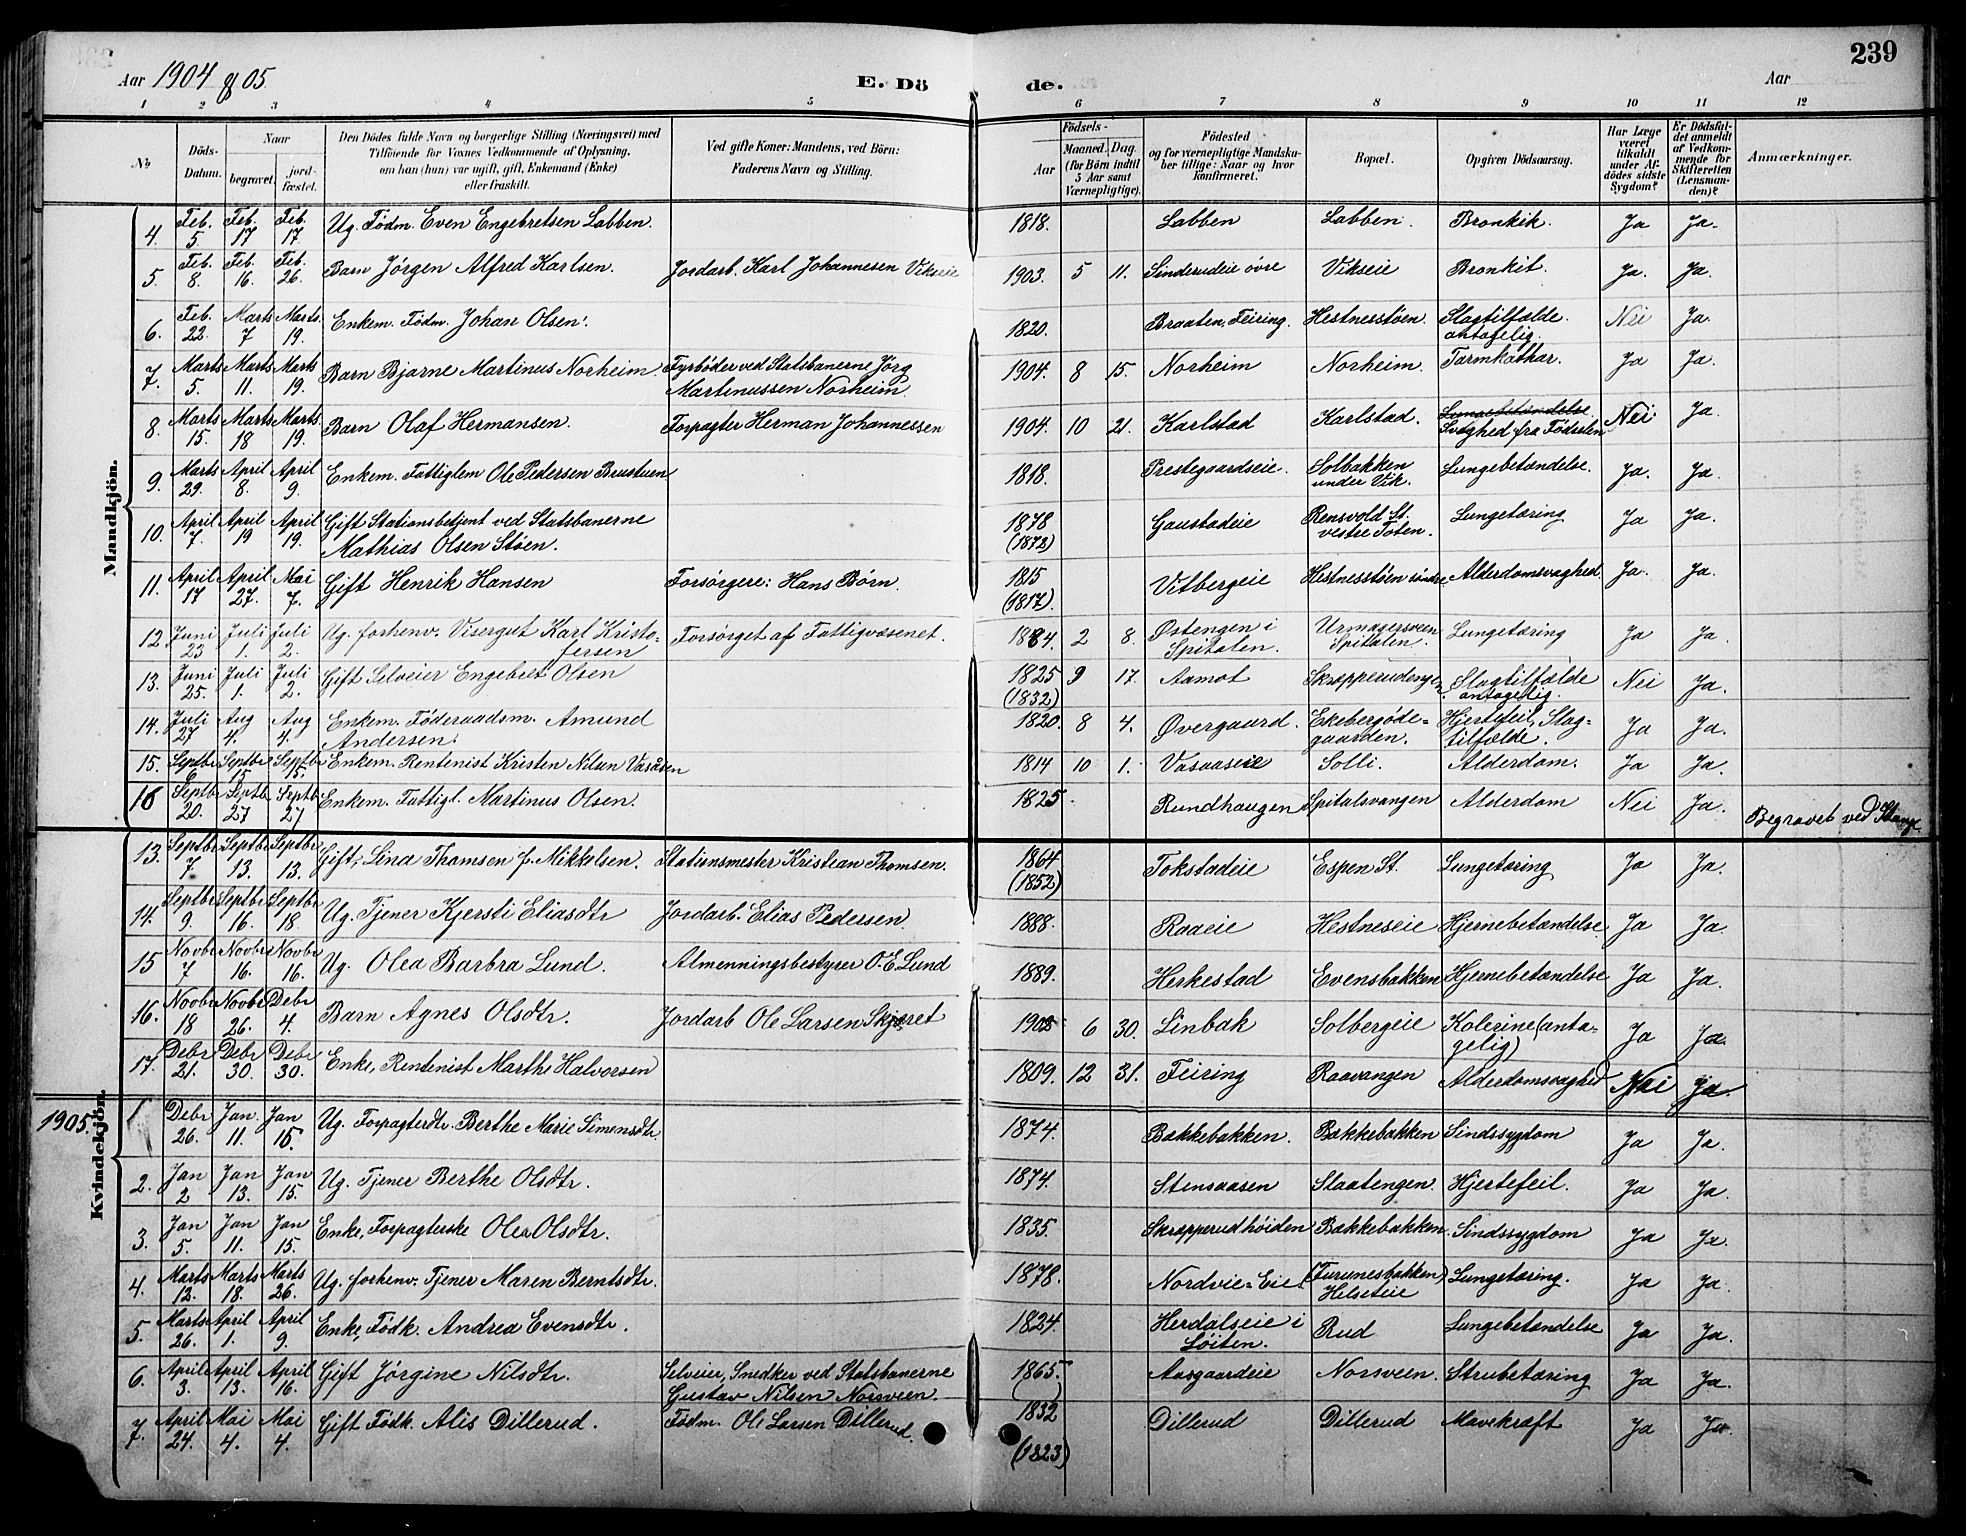 239
Aar 1904 & 05 E. Dö de. Aar
1 2 3 4 5 6 7 8 9 10 11 12
No
Döds-Datum.
Naar
begravet. jord-fæstet.
Den Dödes fulde Navn og borgerlige Stilling (Næringsvei) med
Tilföiende for Voxnes Vedkommende af Oplysning,
om han (hun) var ugift, gift, Enkemand (Enke)
eller fraskilt.
Ved gifte Koner: Mandens, ved Börn:
Faderens Navn og Stilling.
Födsels-
Aar
Maaned. Dag
(for Börn indtil
5 Aar samt
Værnepligtige).
Födested
og for værnepligtige Mandska-
ber tillige: Naar og hvor
konfirmeret.
Bopæl.
Opgiven Dödsaarsag.
Har Læge
været
tilkaldt
under Af-
dödes sidste
Sygdom?
Er Dödsfal-
det anmeldt
af Vedkom-
mende for
Skifteretten
(Lensman-
den)?
Anmærkninger.
Mandkjön.
4. Feb. 5 Feb. 17 Feb. 17. Ug. Fødm. Even Engebretsen Labben. 1818. Labben Labben. Bronkik. Ja Ja.
5. Feb. 8. Feb. 16. Feb. 26. Barn Jörgen Alfred Karlsen. Jordarb. Karl Johannesen Vikseie 1903. 5 11. Sinderudeie övre Vikseie Bronkit. Ja. Ja.
6. Feb. 22. Marts 7 Marts. 19. Enkem. Fødm. Johan Olsen. 1820. Braaten, Feiring. Hestnesstöen. Slagtilfælde antagelig. Nei Ja.
7. Marts 5. Marts 11. Marts 19. Barn Bjarne Martinus Norheim. Fyrbøder ved Statsbanerne Jörg
Martinussen Norheim. 1904. 8 15. Norheim Norheim. Tarmkathar. Ja Ja.
8. Marts 15. Marts 18 Marts. 19. Barn Olaf Hermansen. Forpagter Herman Johannessen 1904. 10 21. Karlstad Karlstad. Lungebetændelse.
Svaghed fra Fødselen Nei Ja.
9. Marts 29. April 8. April 9. Enkem. Fattiglem Ole Pedersen Brustuen 1818. Prestegaardseie. Solbakken
under Vik. Lungebetændelse. Ja. Ja.
10. April 7. April 19 April 19. Gift Stationsbetjent ved Statsbanerne
Mathias Olsen Støen. 1878
(1872) Gaustadeie Rensvold St.
vestre Toten. Lungetæring Ja Ja.
11. April 17 April 27. Mai 7. Gift Henrik Hansen Forsörgere: Hans Børn. 1815
(1817). Vitbergeie Hestnesstöen söndre Alderdomsvaghed. Ja. Ja.
12 Juni 23 Juli 1. Juli 2. Ug. forhenv. Visergut Karl Kristo-
fersen Forsörget af Fattigvæsenet. 1884 2 8. Østengen i
Spitalen. Urmagersveen
Spitalen. Lungetæring Ja Ja.
13. Juni 25. Juli 1. Juli 2. Gift Selveier Engebret Olsen 1825
(1832) 9 17. Aamot Skræpperudengen Slagtilfælde
antagelig. Nei Ja.
14. Juli 27 Aug 4. Aug 4. Enkem. Föderaadsm. Amund
Andersen. 1820. 8 4. Øvergaard. Ekebergöde-
gaarden. Hjertefeil, Slag-
tilfælde. Ja Ja.
15. Septbr 6 Septbr 15 Septbr 15. Enkem. Rentenist Kristen Nilsen Vasaasen 1814 10 1. Vasaaseie Solli. Alderdom. Ja Ja.
16 Septbr 20. Septb 27 Septb 27 Enkem. Fattigl. Martinus Olsen. 1825. Rundhaugen Spitalsvangen Alderdom Nei Ja. Begravet ved Stange
Kvindekjön.
13. Septbr 7 Septbr 13. Septbr 13. Gift, Lina Thomsen f. Mikkelsen. Stationsmester Kristian Thomsen. 1864
(1852) Tokstadeie Espen St. Lungetæring Ja Ja.
14. Septbr 9. Septbr 16. Septbr 18. Ug. Tjener Kjersti Eliasdtr Jordarb. Elias Pedersen. 1888. Raaeie Hestneseie Hjernebetændelse. Ja Ja.
15 Novbr 7 Novbr 16. Novbr 16. Ug. Olea Barbra Lund. Almenningsbestyrer O. E. Lund 1889. Herkestad Evensbakken Hjernebetændelse Ja Ja.
16. Novbr 18 Novbr 26. Debr 4. Barn Agnes Olsdtr. Jordarb Ole Larsen Skjæret 6 30. Linbak Solbergeie Kolerine (anta-
gelig) Ja Ja.
17. Debr 21. Debr 30. Debr 30. Enke, Rentenist Marthe Halvorsen 1809. 12 31. Feiring Raavangen Alderdomsvaghed Nei Ja.
1905.
1 Debr 26. Jan 11. Jan 15. Ug. Forpagterdtr. Berthe Marie Simensdtr 1874. Bakkebakken. Bakkebakken Sindssygdom Ja Ja.
2. Jan 2 Jan 13. Jan 15. Ug. Tjener Berthe Olsdtr. 1874. Stensaasen Slaatengen. Hjertefeil. Ja Ja.
3. Jan 5. Jan 11. Jan 15. Enke, Forpagterske Olea Olsdtr. 1835. Skræpperudhöiden Bakkebakken. Sindssygdom Ja Ja.
4. Marts 12. Marts 18. Marts 26. Ug. forhenv. Tjener Maren Berntsdtr. 1878. Nordvie-Eie. (Furunesbakken)
Helseteie Lungetæring. Ja Ja.
5. Marts 26. April 1. April 9. Enke, Födk. Andrea Evensdtr. 1824. Herdalseie i
Löiten. Rud Lungebetændelse Ja Ja.
6. April 3. April 13. April 16. Gift Jörgine Nilsdtr. Selveier, Snedker ved Statsbanerne
Gustav Nilsen Norsveen. 1865. ( ) Aasgaardeie Norsveen. Strubetæring Ja Ja.
7. April 24. Mai 4. Mai 4. Gift Födk. Alis Dillerud. Fødm. Ole Larsen Dillerud. 1832
(1823) Dillerud Dillerud Mavekræft Ja Ja.